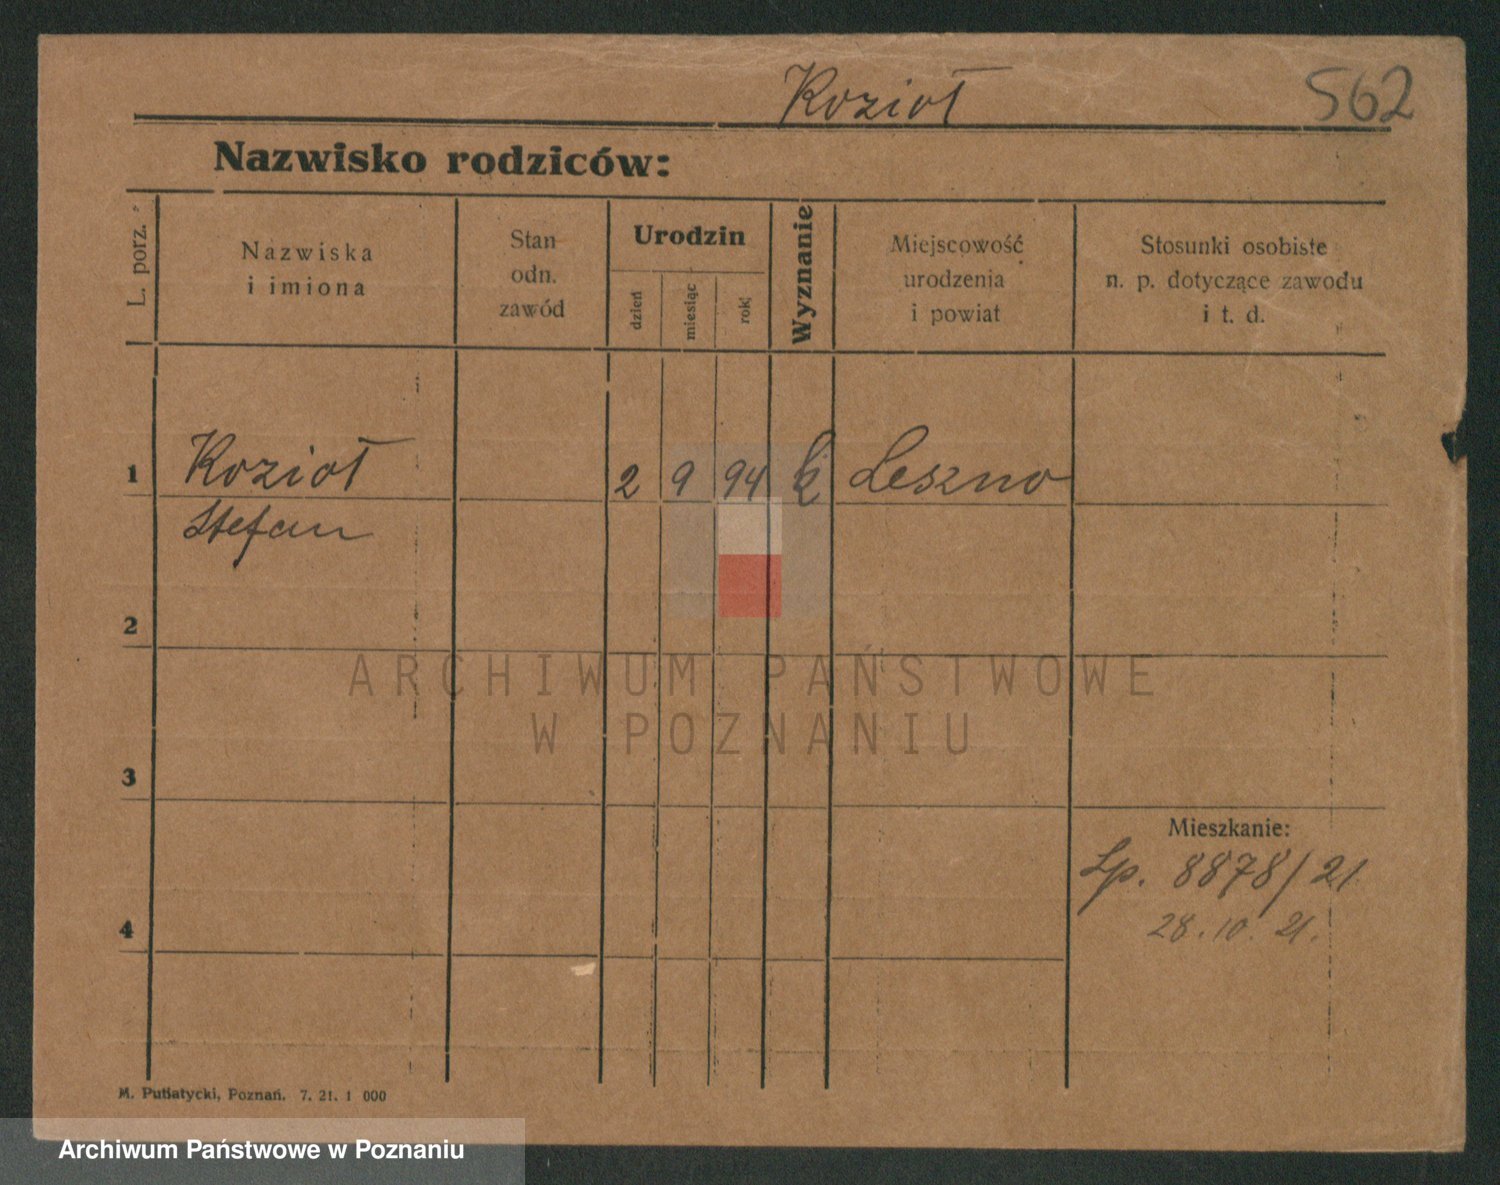 Kozioł
562
Nazwisko rodziców:
L. porz.
Nazwiska
i imiona
Stan
odn.
zawód
Urodzin
dzień
miesiąc
rok
Wyznanie
Miejscowość
urodzenia
i powiat
Stosunki osobiste
n. p. dotyczące zawodu
i t. d.
1 Kozioł 2 9 94 k Leszno
Stefan
2
ARCHIWUM PAŃSTWOWE
W POZNANIU
3
Mieszkanie:
Lp. 8878/21
28.10.21.
4
M. Putiatycki, Poznań. 7. 21. 1 000
Archiwum Państwowe w Poznaniu